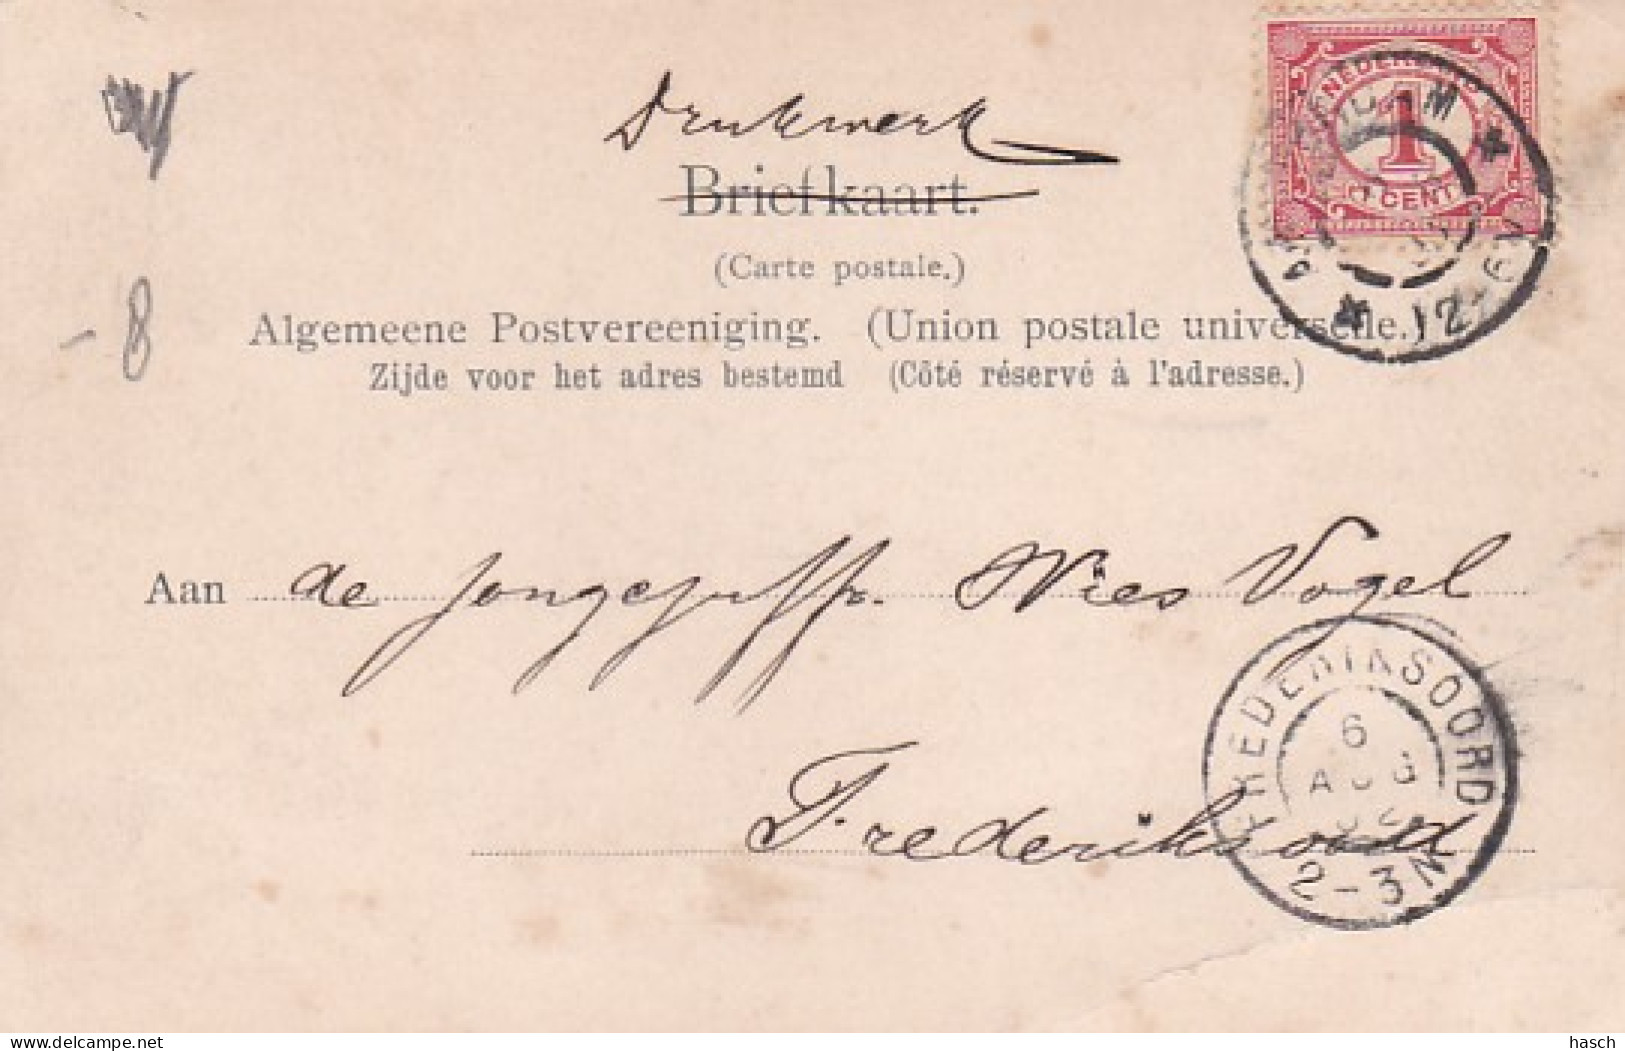 Drukwerk
Briefkaart.
(Carte postale.)
Algemeene Postvereeniging. (Union postale universelle.)
Zijde voor het adres bestemd (Côté réservé à l'adresse.)
NEDERL
1
1 CENT
12-6V
- 8
Aan de jongejuffr. Wies Vogel
Frederiksoord
FREDERIKSOORD
6
AUG
02
2-3N
hasch